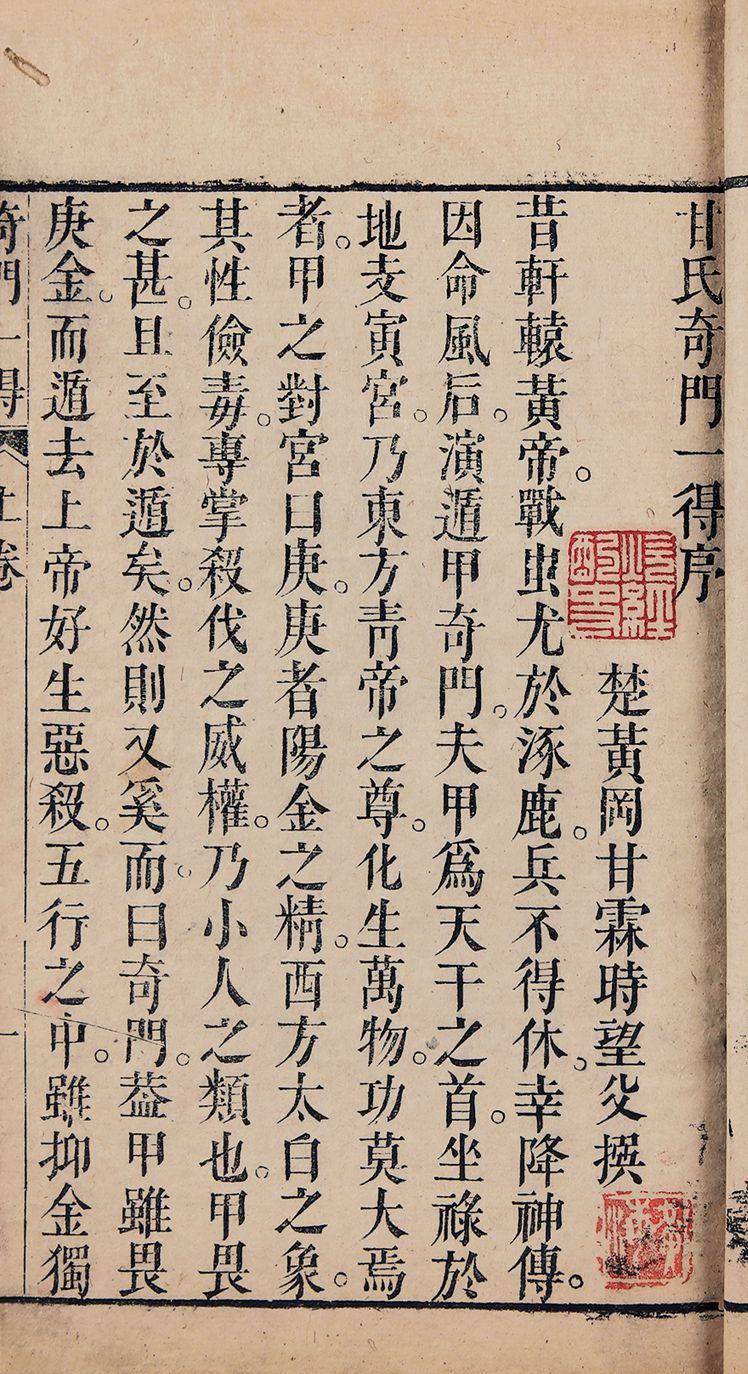 甘氏奇門一得序
楚黃岡甘霖時望父撰
昔軒轅黃帝。戰蚩尤於涿鹿。兵不得休。幸降神傳。
因命風后。演遁甲奇門。夫甲爲天干之首。坐祿於
地支寅宮。乃東方靑帝之尊。化生萬物。功莫大焉
者。甲之對宮曰庚。庚者陽金之精。西方太白之象。
其性儉毒。專掌殺伐之威權。乃小人之類也。甲畏
之甚。且至於遁矣。然則又奚而曰奇門。葢甲雖畏
庚金。而遁去上帝好生惡殺。五行之中。雖抑金獨
奇門一得 上卷 一